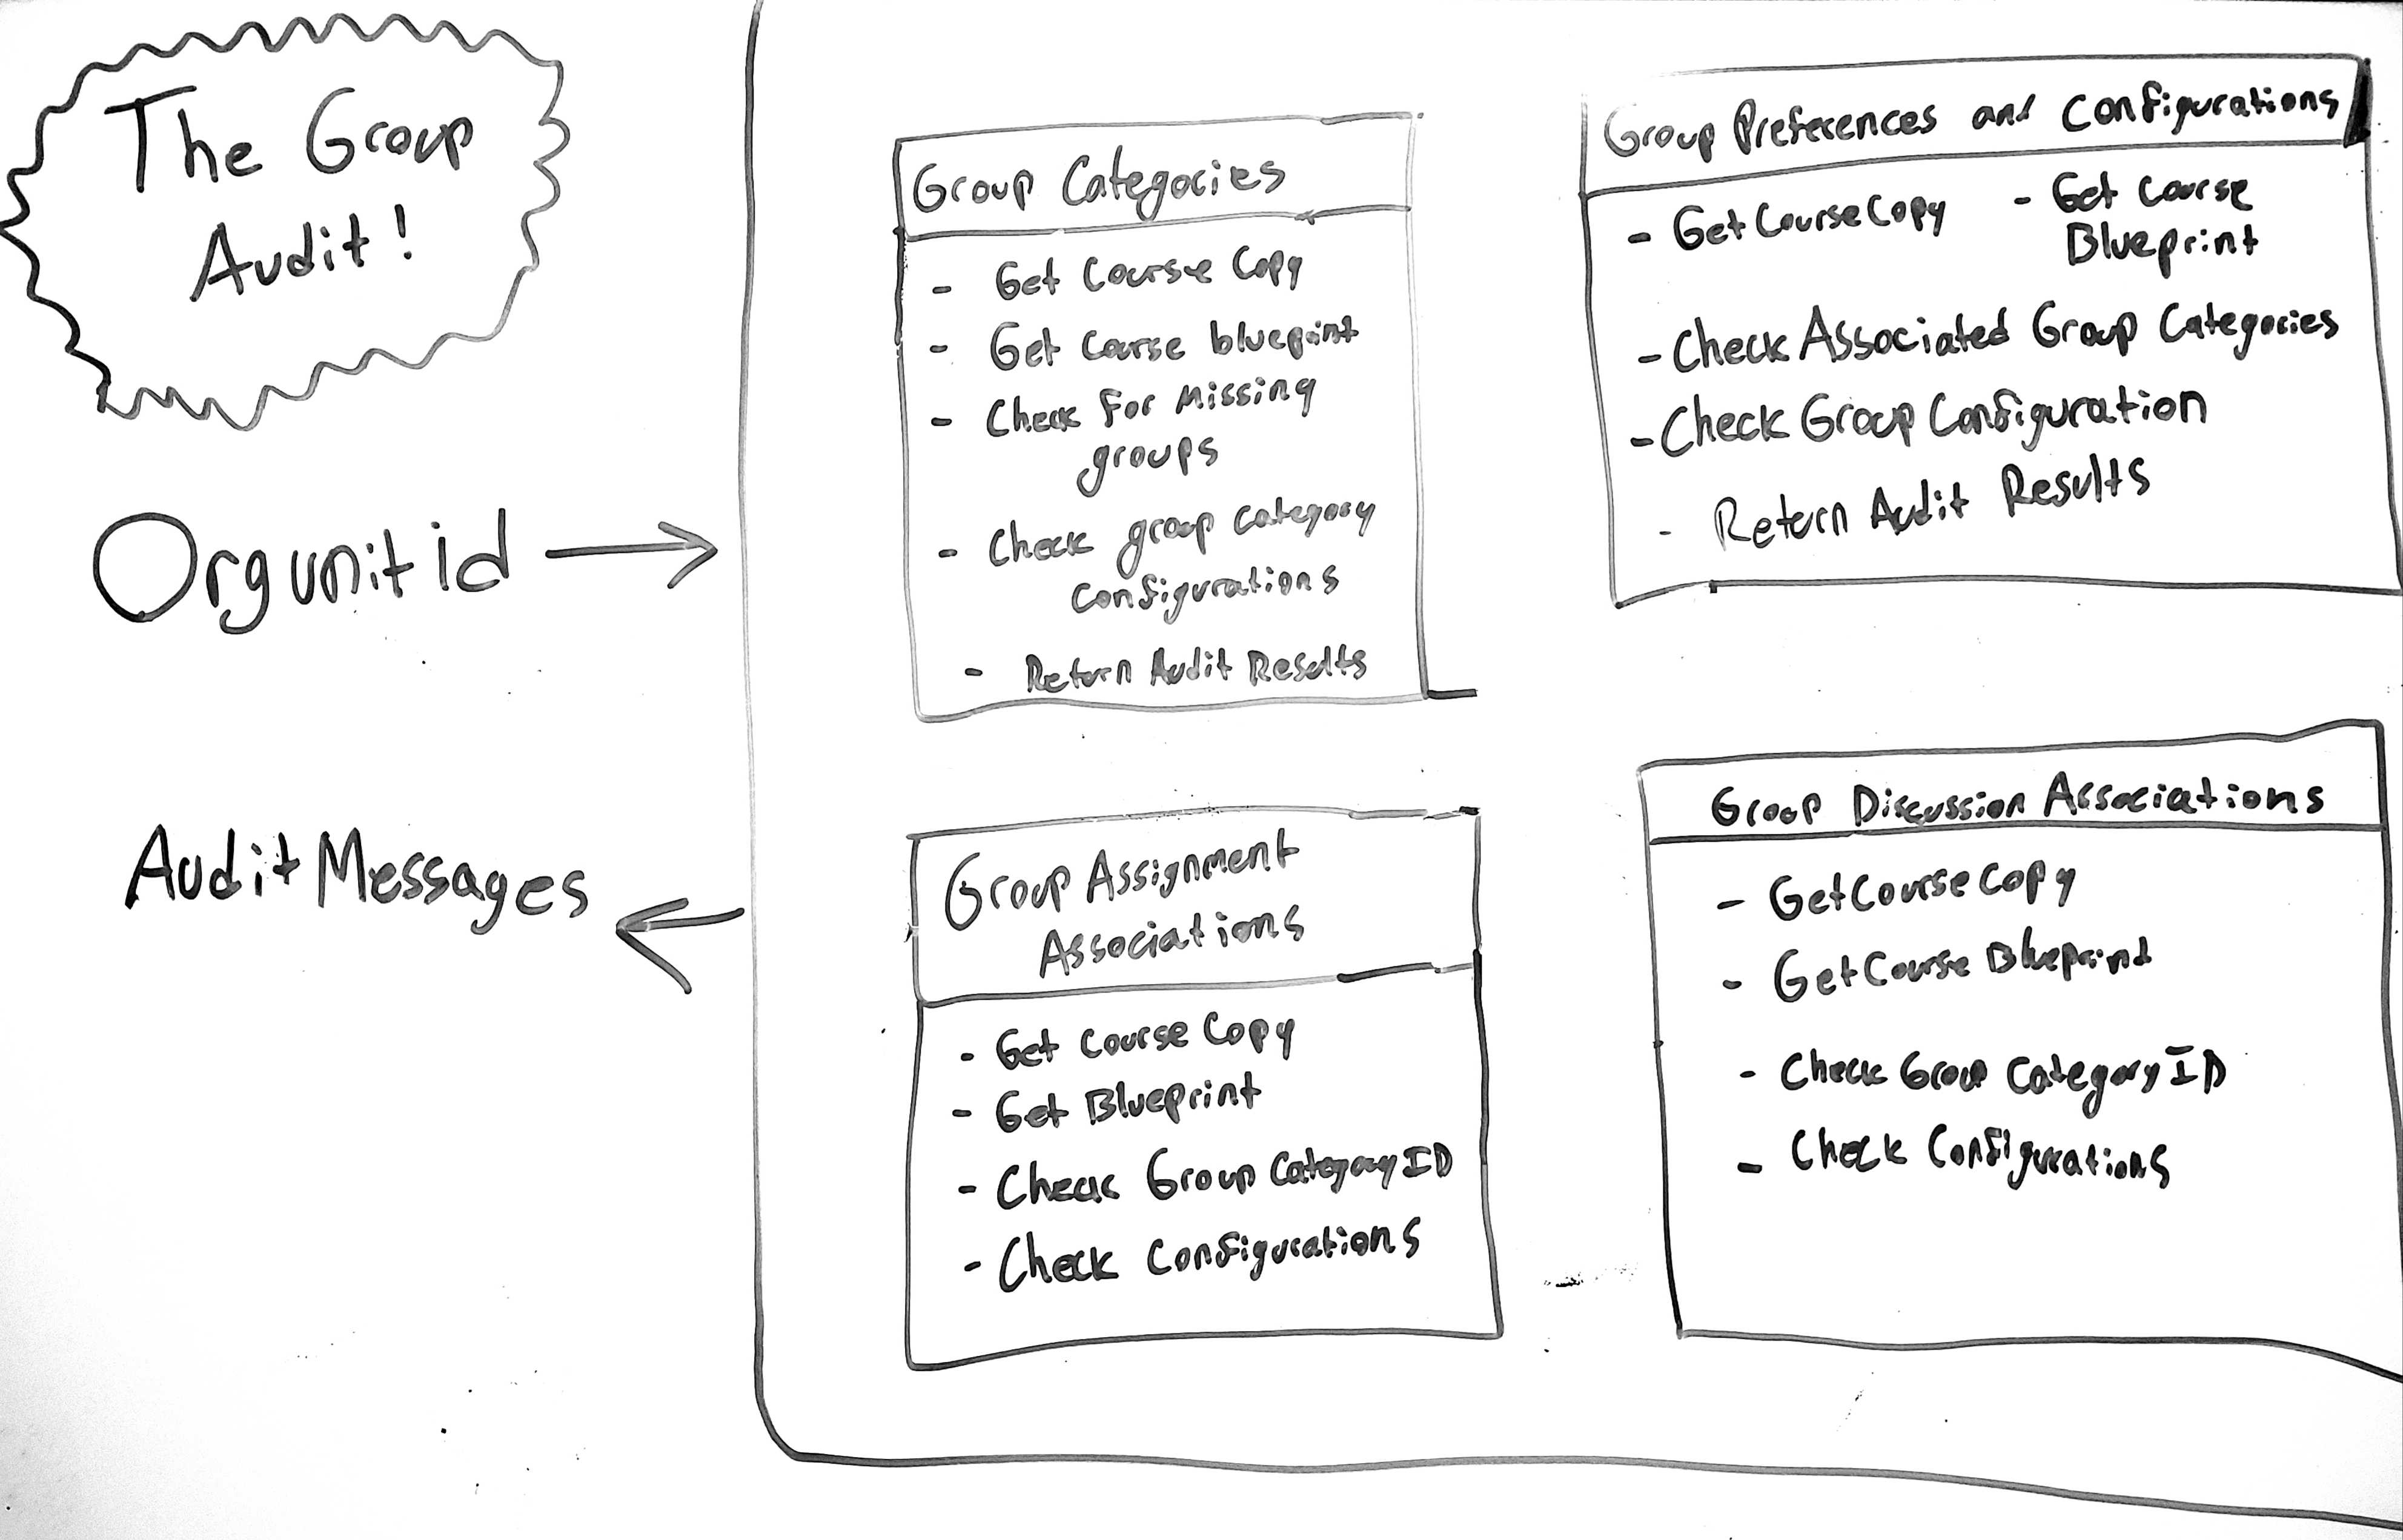 The Group
Audit!
Orgunitid
Audit Messages
Group Categories
- Get Course Copy
- Get Course blueprint
- Check For Missing
groups
- Check group Category
Configurations
- Return Audit Results
Group Preferences and Configurations
- Get Course Copy
- Get Course
Blueprint
- Check Associated Group Categories
- Check Group Configuration
- Return Audit Results
Group Assignment
Associations
- Get Course Copy
- Get Blueprint
- Check Group Category ID
- Check Configurations
Group Discussion Associations
- Get Course Copy
- Get Course Blueprint
- Check Group Category ID
- Check Configurations